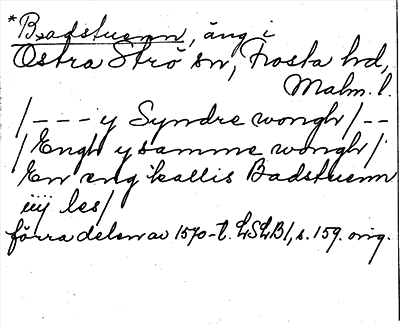 *Badstuenn, äng i
Östra Strö sn, Frosta hd,
Malm. l.
/--- y Syndre wongh/--
/Engh y samme wongh/
En eng kallis Badstuenn
iiij les/
förra delen av 1570-t. LSLB1, s. 159. orig.